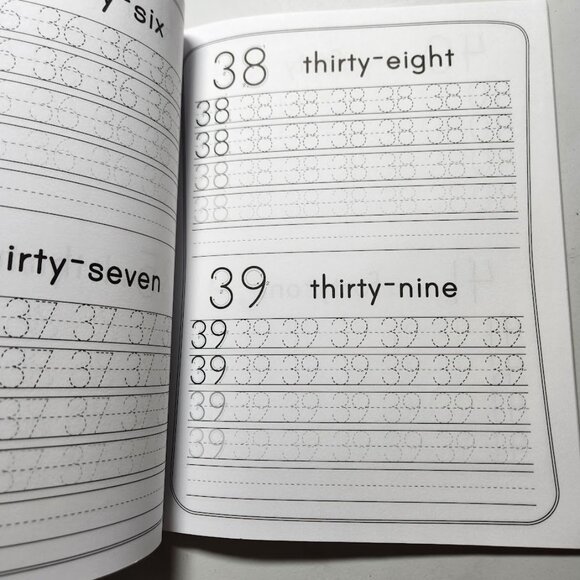 -six
36 36 36
36 36 36
36 36 36
36 36 36
irty-seven
37 37 37 37
37 37 37 37
37 37 37 37
37 37 37 37
38 thirty-eight
38 38 38 38 38 38 38
38 38 38 38 38 38 38
38 38 38 38 38 38 38
38 38 38 38 38 38 38
39 thirty-nine
39 39 39 39 39 39 39
39 39 39 39 39 39 39
39 39 39 39 39 39 39
39 39 39 39 39 39 39